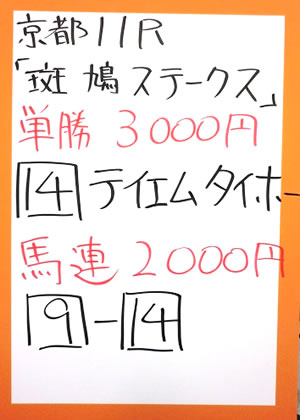 京都11R
「斑鳩ステークス」
単勝 3000円
14 テイエムタイホー
馬連 2000円
9-14